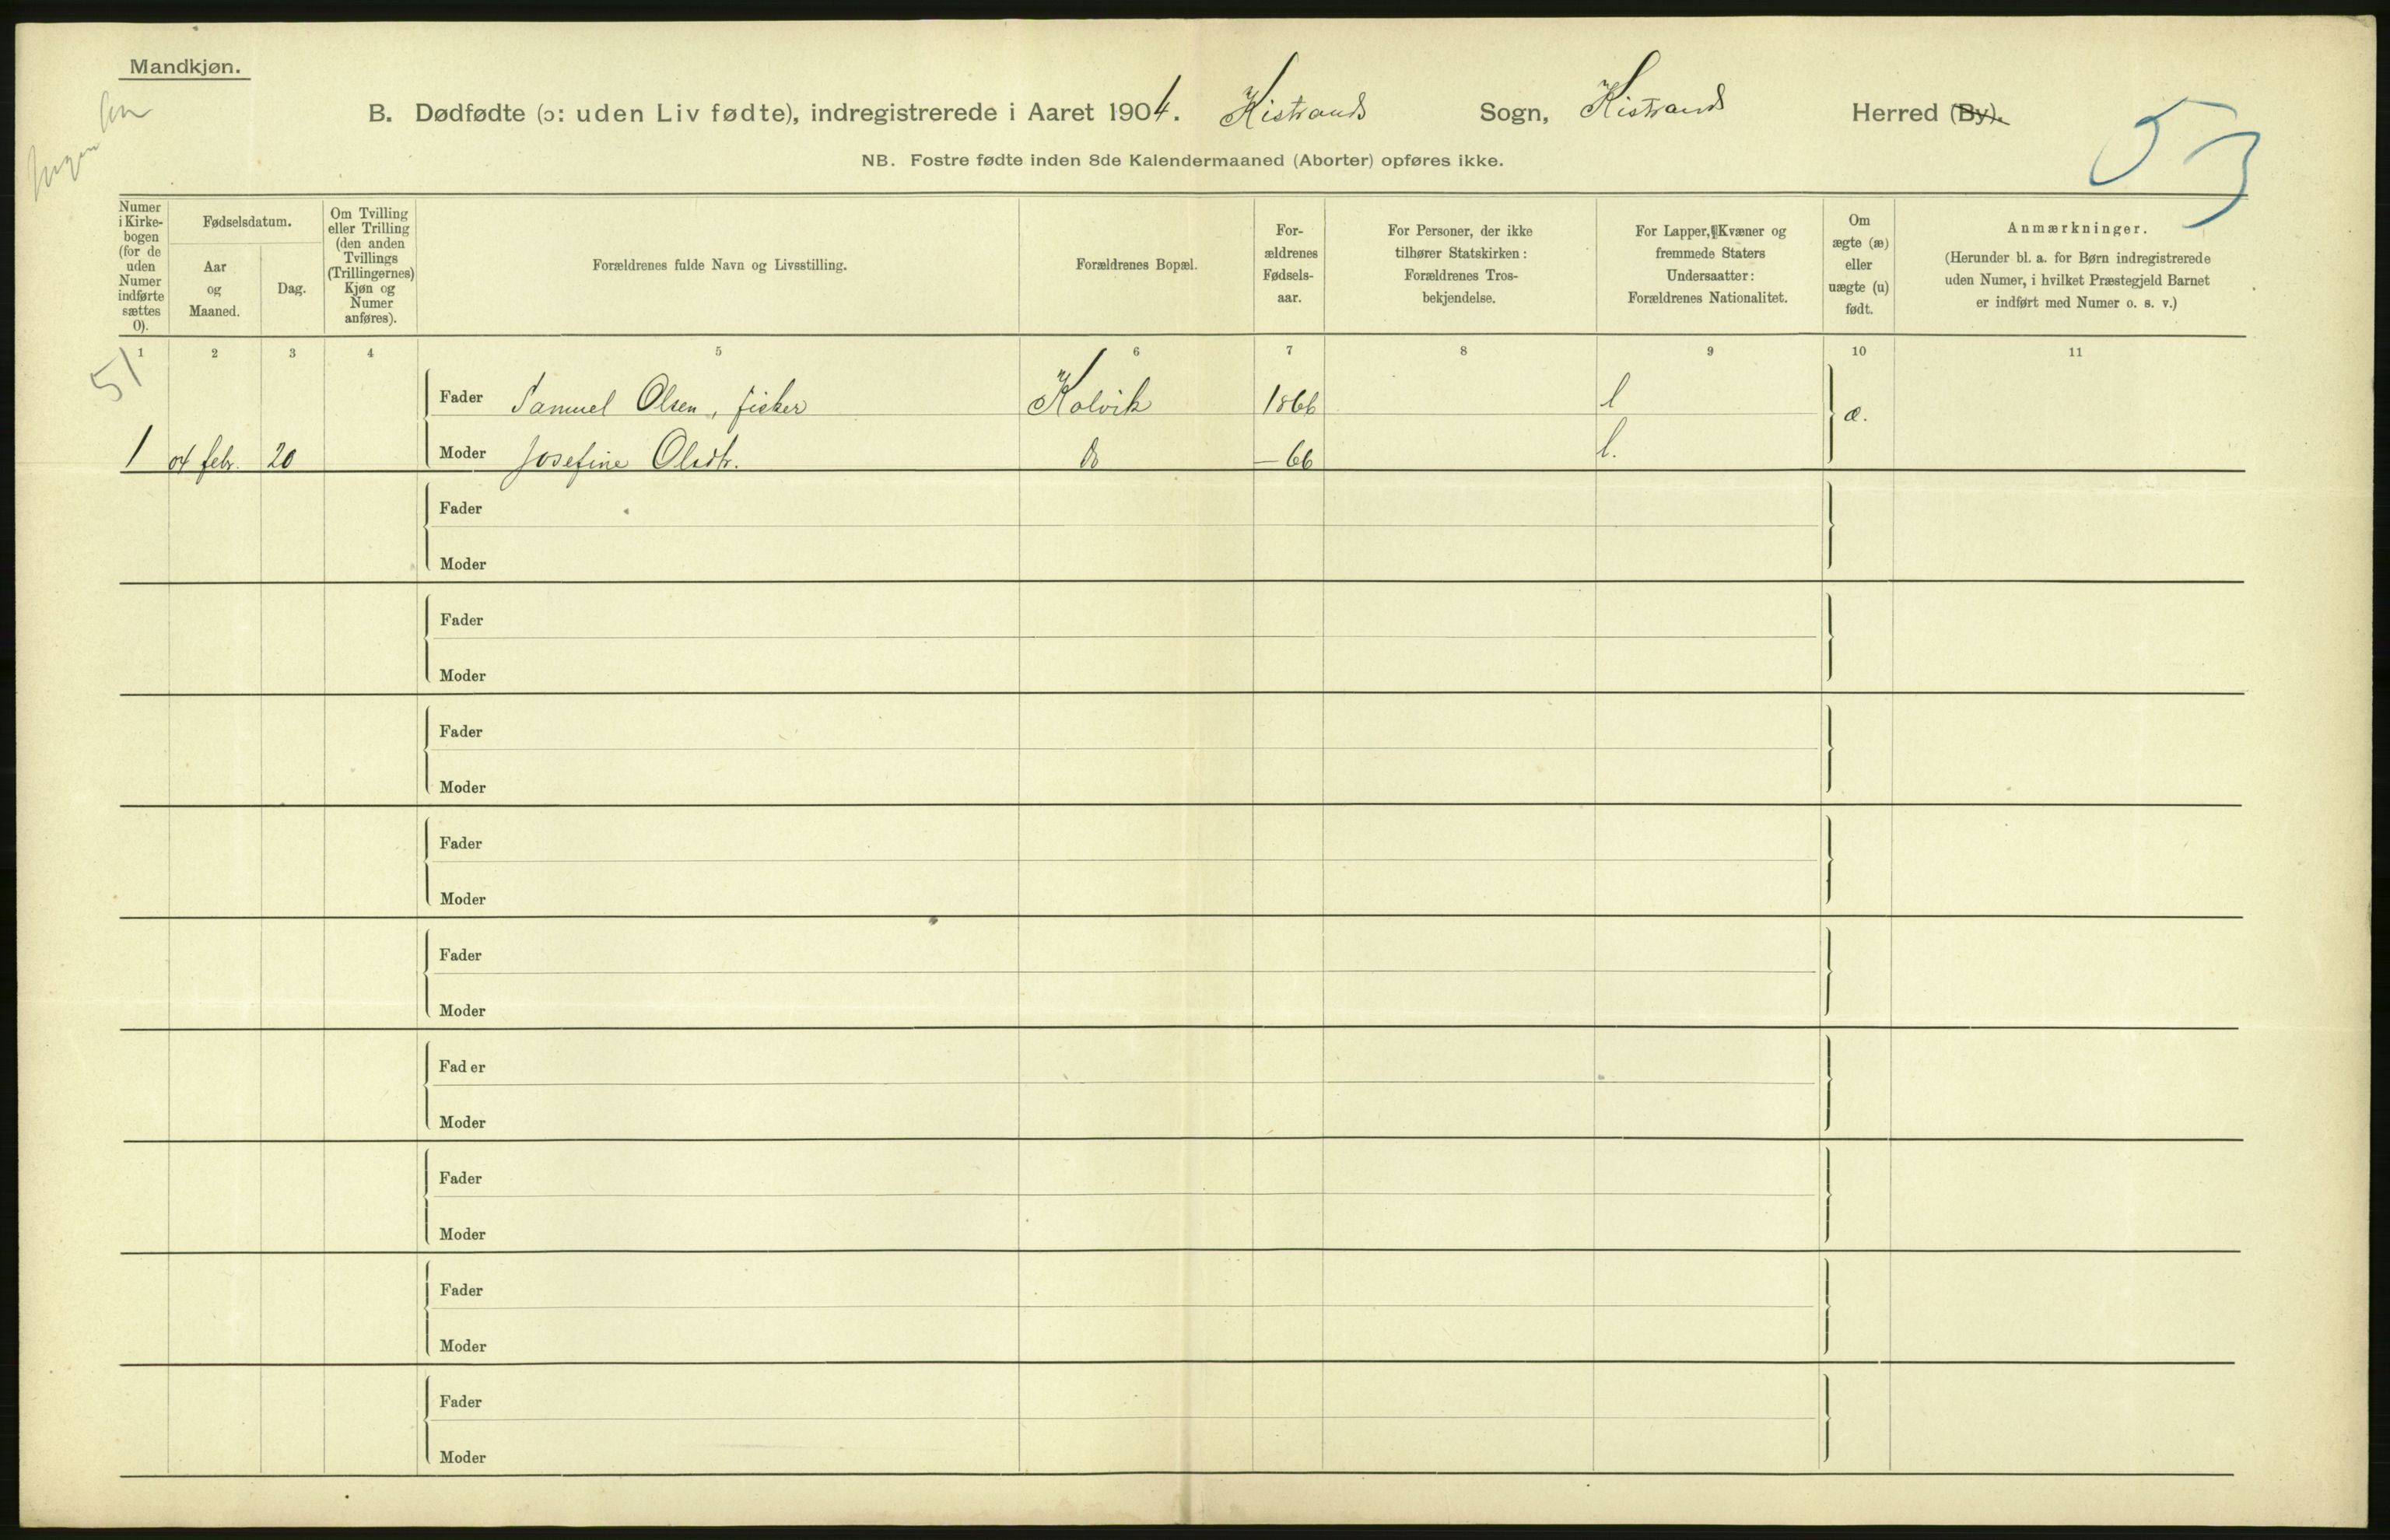 Mandkjøn.
B. Dødfødte (ɔ: uden Liv fødte), indregistrerede i Aaret 1904. Kistrands Sogn, Kistrand Herred (By).
53
NB. Fostre fødte inden 8de Kalendermaaned (Aborter) opføres ikke.
Numer i Kirke- bogen (for de uden Numer indførte sættes 0).
Fødselsdatum.
Aar og Maaned.
Dag.
Om Tvilling eller Trilling (den anden Tvillings (Trillingernes) Kjøn og Numer anføres).
Forældrenes fulde Navn og Livsstilling.
Forældrenes Bopæl.
For- ældrenes Fødsels- aar.
For Personer, der ikke tilhører Statskirken: Forældrenes Tros- bekjendelse.
For Lapper, Kvæner og fremmede Staters Undersaatter: Forældrenes Nationalitet.
Om ægte (æ) eller uægte (u) født.
Anmærkninger.
(Herunder bl. a. for Børn indregistrerede uden Numer, i hvilket Præstegjeld Barnet er indført med Numer o. s. v.)
1 2 3 4 5 6 7 8 9 10 11
51
Fader Samuel Olsen, fisker Kolvik 1866 l æ.
1 04 febr. 20 Moder Josefine Olsdtr. do — 66 l.
Fader
Moder
Fader
Moder
Fader
Moder
Fader
Moder
Fader
Moder
Fader
Moder
Fader
Moder
Fader
Moder
Fader
Moder